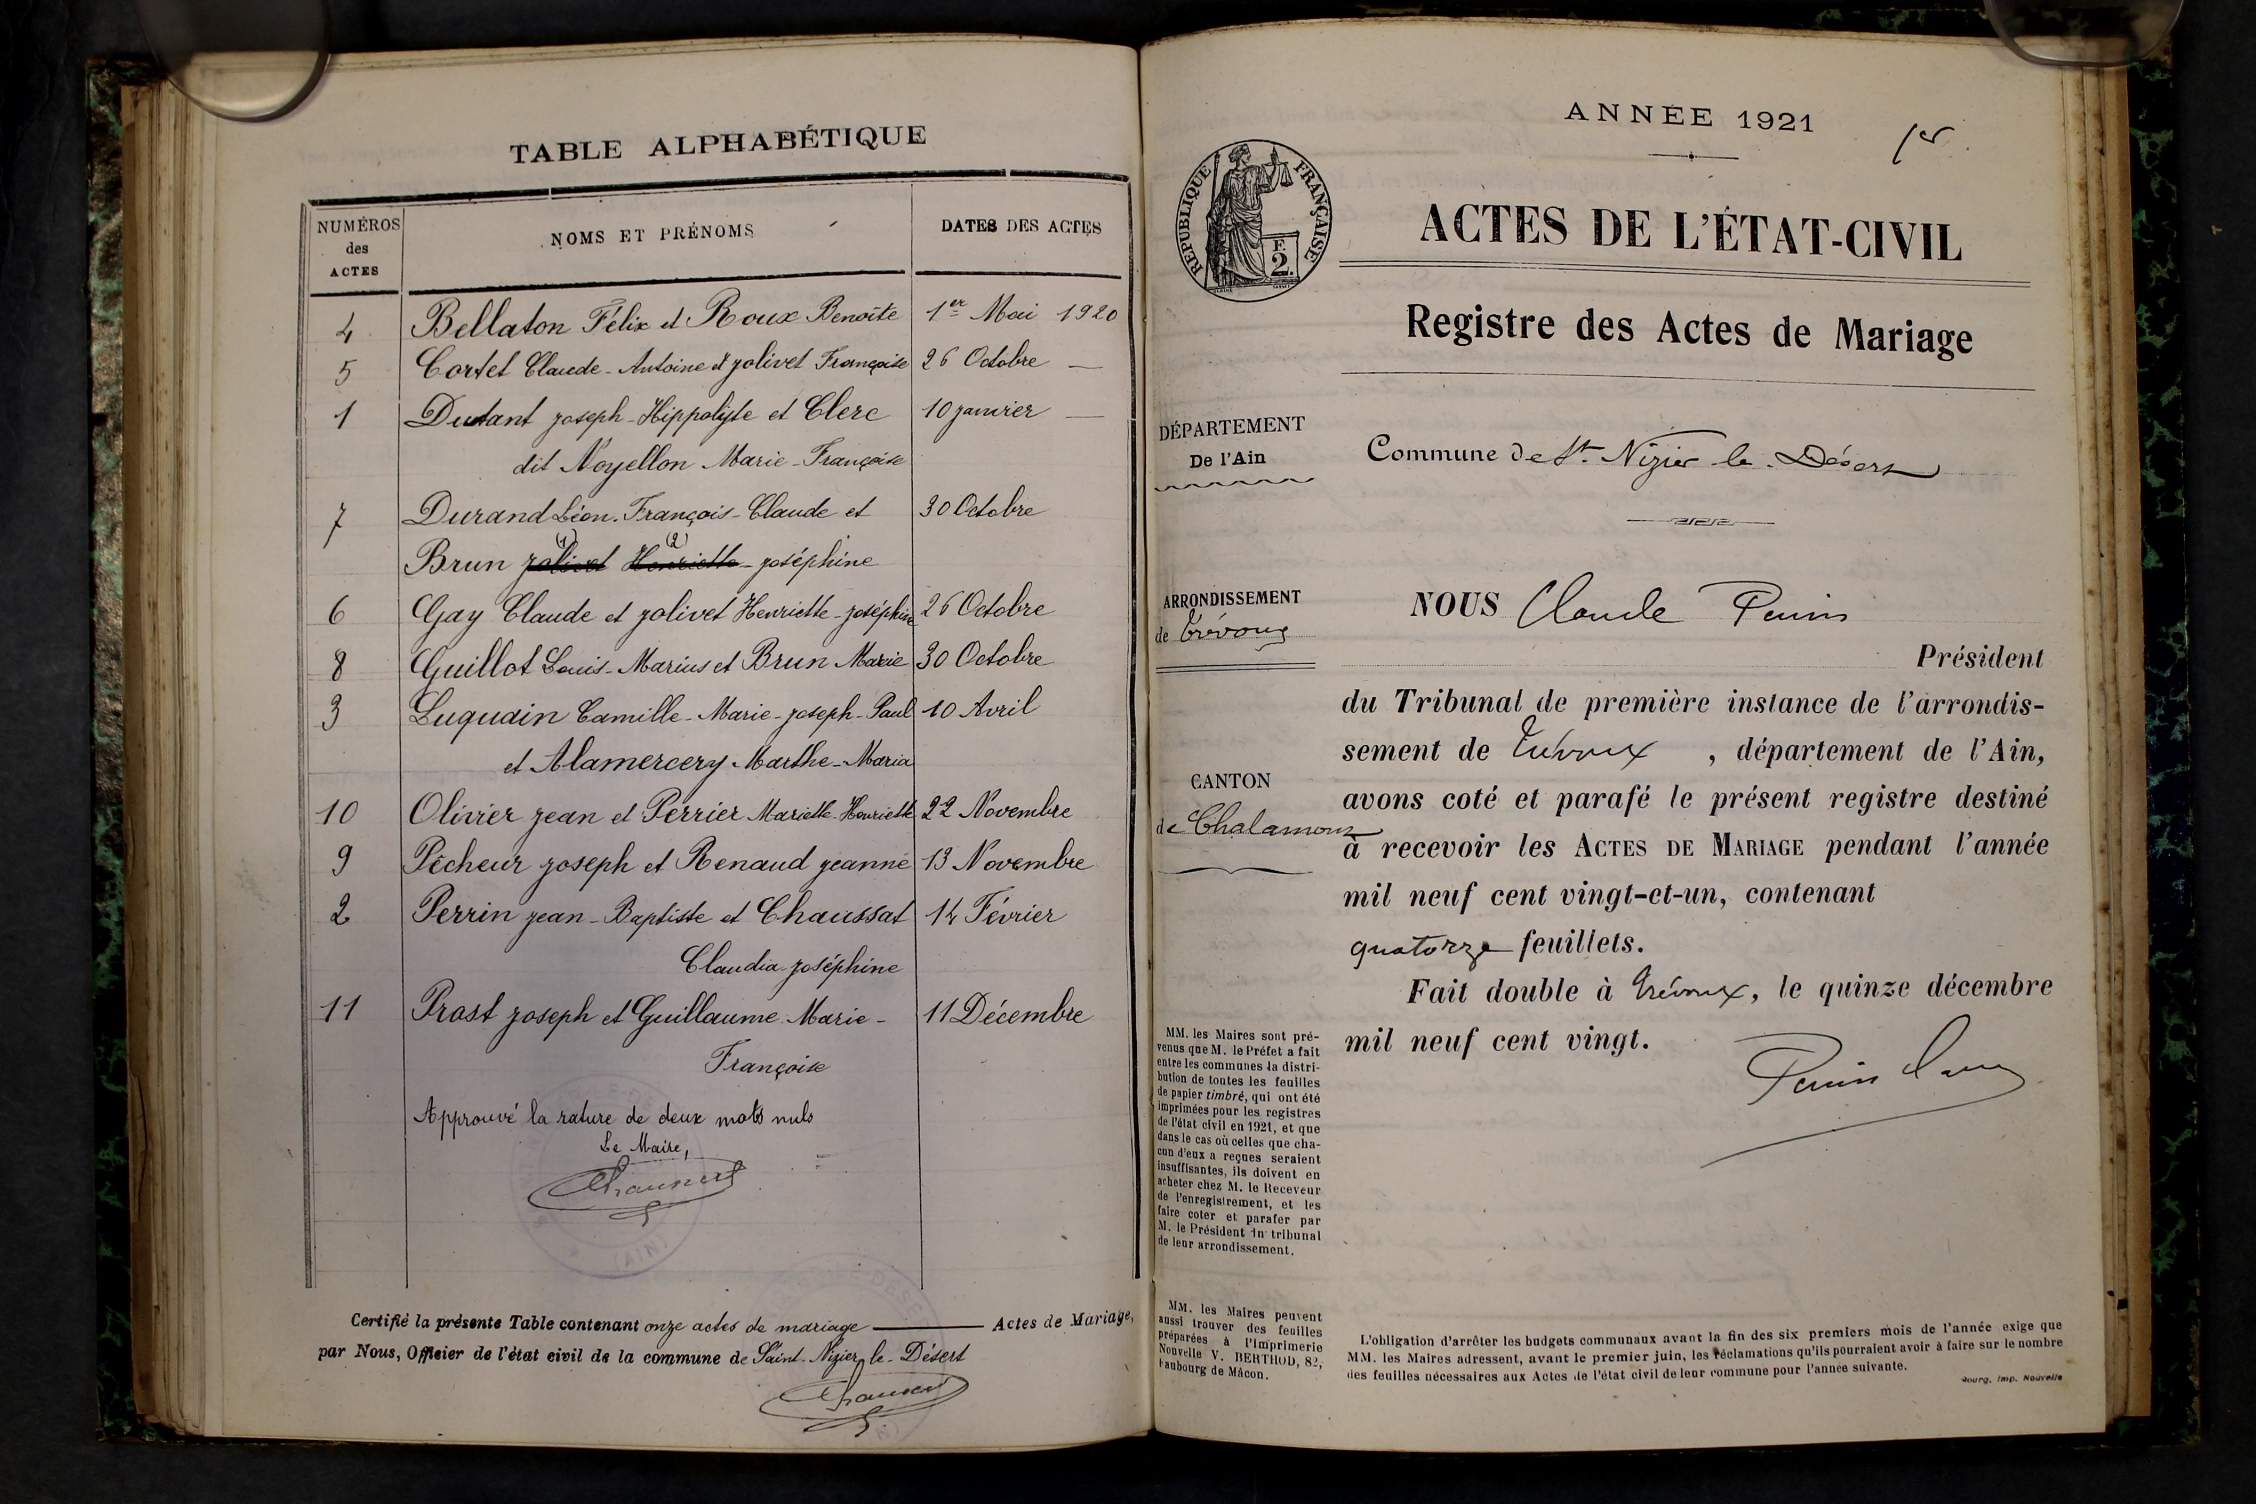 TABLE ALPHABÉTIQUE
NUMÉROS des ACTES
NOMS ET PRÉNOMS
DATES DES ACTES
4 Bellaton Félix et Roux Benoîte 1er Mai 1920
5 Cortet Claude-Antoine et Jolivet Françoise 26 Octobre —
1 Dutant Joseph-Hippolyte et Clerc 10 Janvier —
dit Noyellon Marie-Françoise
7 Durand Léon-François-Claude et 30 Octobre
(1) (2)
Brun Jolivet Henriette-Joséphine
6 Gay Claude et Jolivet Henriette-Joséphine 26 Octobre
8 Guillot Louis-Marius et Brun Marie 30 Octobre
3 Luquain Camille-Marie-Joseph-Paul 10 Avril
et Alamercery Marthe-Maria
10 Olivier Jean et Perrier Mariette-Henriette 22 Novembre
9 Pêcheur Joseph et Renaud Jeanne 13 Novembre
2 Perrin Jean-Baptiste et Chaussat 14 Février
Claudia-Joséphine
11 Prost Joseph et Guillaume Marie- 11 Décembre
Françoise
Approuvé la rature de deux mots nuls
Le Maire,
(AIN)
Certifié la présente Table contenant onze actes de mariage — Actes de Mariage,
par Nous, Officier de l'état civil de la commune de Saint-Nizier-le-Désert
ANNÉE 1921
1er
RÉPUBLIQUE FRANÇAISE
F.
2.
ACTES DE L'ÉTAT-CIVIL
Registre des Actes de Mariage
DÉPARTEMENT
De l'Ain
Commune de St. Nizier le Désert
ARRONDISSEMENT
de Trévoux
NOUS Claude Perrin
Président
du Tribunal de première instance de l'arrondis-
sement de Trévoux, département de l'Ain,
CANTON
de Chalamont
avons coté et parafé le présent registre destiné
à recevoir les ACTES DE MARIAGE pendant l'année
mil neuf cent vingt-et-un, contenant
quatorze feuillets.
Fait double à Trévoux, le quinze décembre
mil neuf cent vingt.
Perrin
MM. les Maires sont pré-
venus que M. le Préfet a fait
entre les communes la distri-
bution de toutes les feuilles
de papier timbré, qui ont été
imprimées pour les registres
de l'état civil en 1921, et que
dans le cas où celles que cha-
cun d'eux a reçues seraient
insuffisantes, ils doivent en
acheter chez M. le Receveur
de l'enregistrement, et les
faire coter et parafer par
M. le Président du tribunal
de leur arrondissement.
MM. les Maires peuvent
aussi trouver des feuilles
préparées à l'Imprimerie
Nouvelle V. BERTHOD, 82,
Faubourg de Mâcon.
L'obligation d'arrêter les budgets communaux avant la fin des six premiers mois de l'année exige que
MM. les Maires adressent, avant le premier juin, les réclamations qu'ils pourraient avoir à faire sur le nombre
des feuilles nécessaires aux Actes de l'état civil de leur commune pour l'année suivante.
Bourg, Imp. Nouvelle